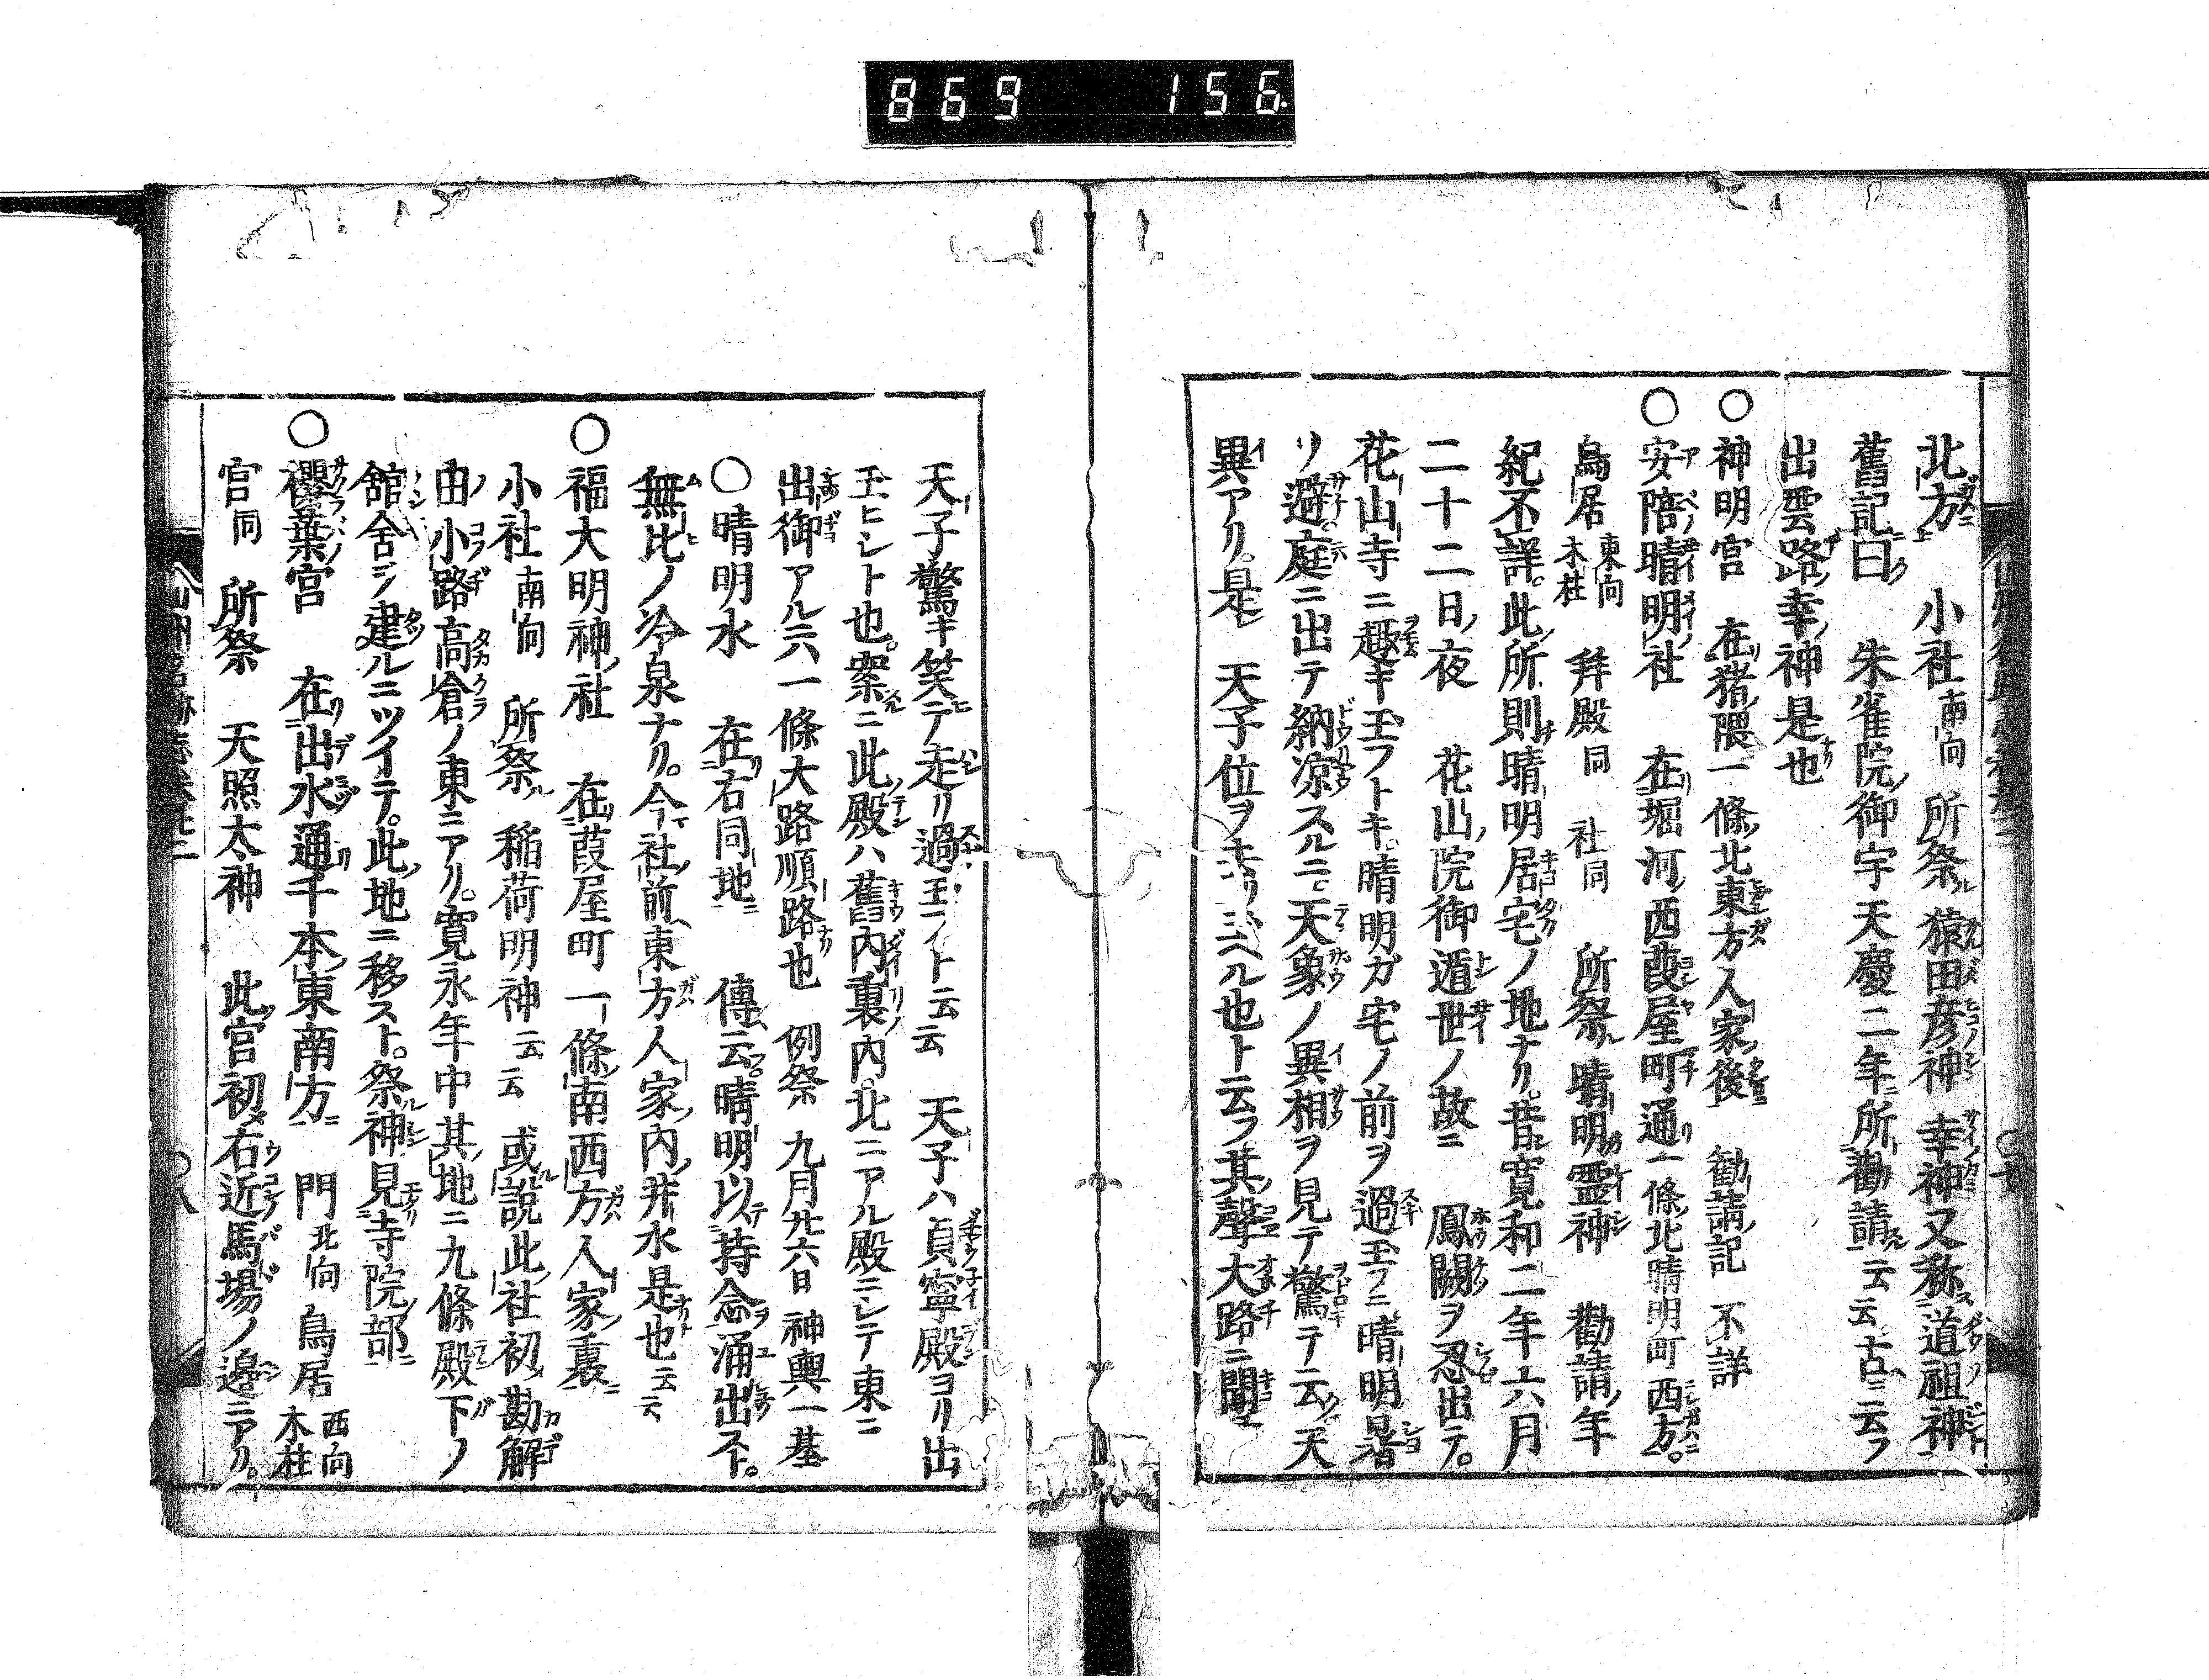 869 156
北方 小社南向 所祭 猿田彦神 幸神又称道祖神
舊記曰 朱雀院御宇天慶二年所勸請云云古ニ云フ
出雲路幸神是也
○神明宮 在猪隈一條北東方人家後 勧請記 不詳
○安陪晴明社 在堀河西葭屋町通一條北晴明町西方。
鳥居東向木柱 拜殿同 社同 所祭 晴明霊神 勸請年
紀不詳。此所則晴明居宅ノ地ナリ。昔寛和二年六月
二十二日夜 花山院御遁世ノ故ニ 鳳闕ヲ忍出テ。
花山寺ニ趣キ玉フトキ。晴明ガ宅ノ前ヲ過玉フニ晴明暑
リ避。庭ニ出テ納凉スルニ。天象ノ異相ヲ見テ驚テ云天
異アリ。是 天子位ヲ玉ヘル也ト云フ其聲大路ニ聞
天子驚キ笑テ走リ過玉イト云云 天子ハ貞寧殿ヨリ出
玉ヒシト也。案ニ此殿ハ舊内裏ノ内。北ニアル殿ニシテ東ニ
出御アル六一條大路順路也 例祭 九月廿六日神輿一基
○晴明水 在右同地 傳云。晴明以持念涌出ス。
無比ノ冷泉ナリ。今社前東方人家内井水是也云云
○福大明神社 在葭屋町一條南西方人家裏
小社南向 所祭 稲荷明神云云 或説此社初勘解
由小路高倉ノ東ニアリ。寛永年中其地ニ九條殿下ノ
舘舍ヲ建ルニツイテ。此地ニ移スト。祭神見寺院部
○櫻葉宮 在出水通千本東南方 門北向 鳥居西向木柱
宮同 所祭 天照太神 此宮初メ右近馬場ノ邊ニアリ。
○八